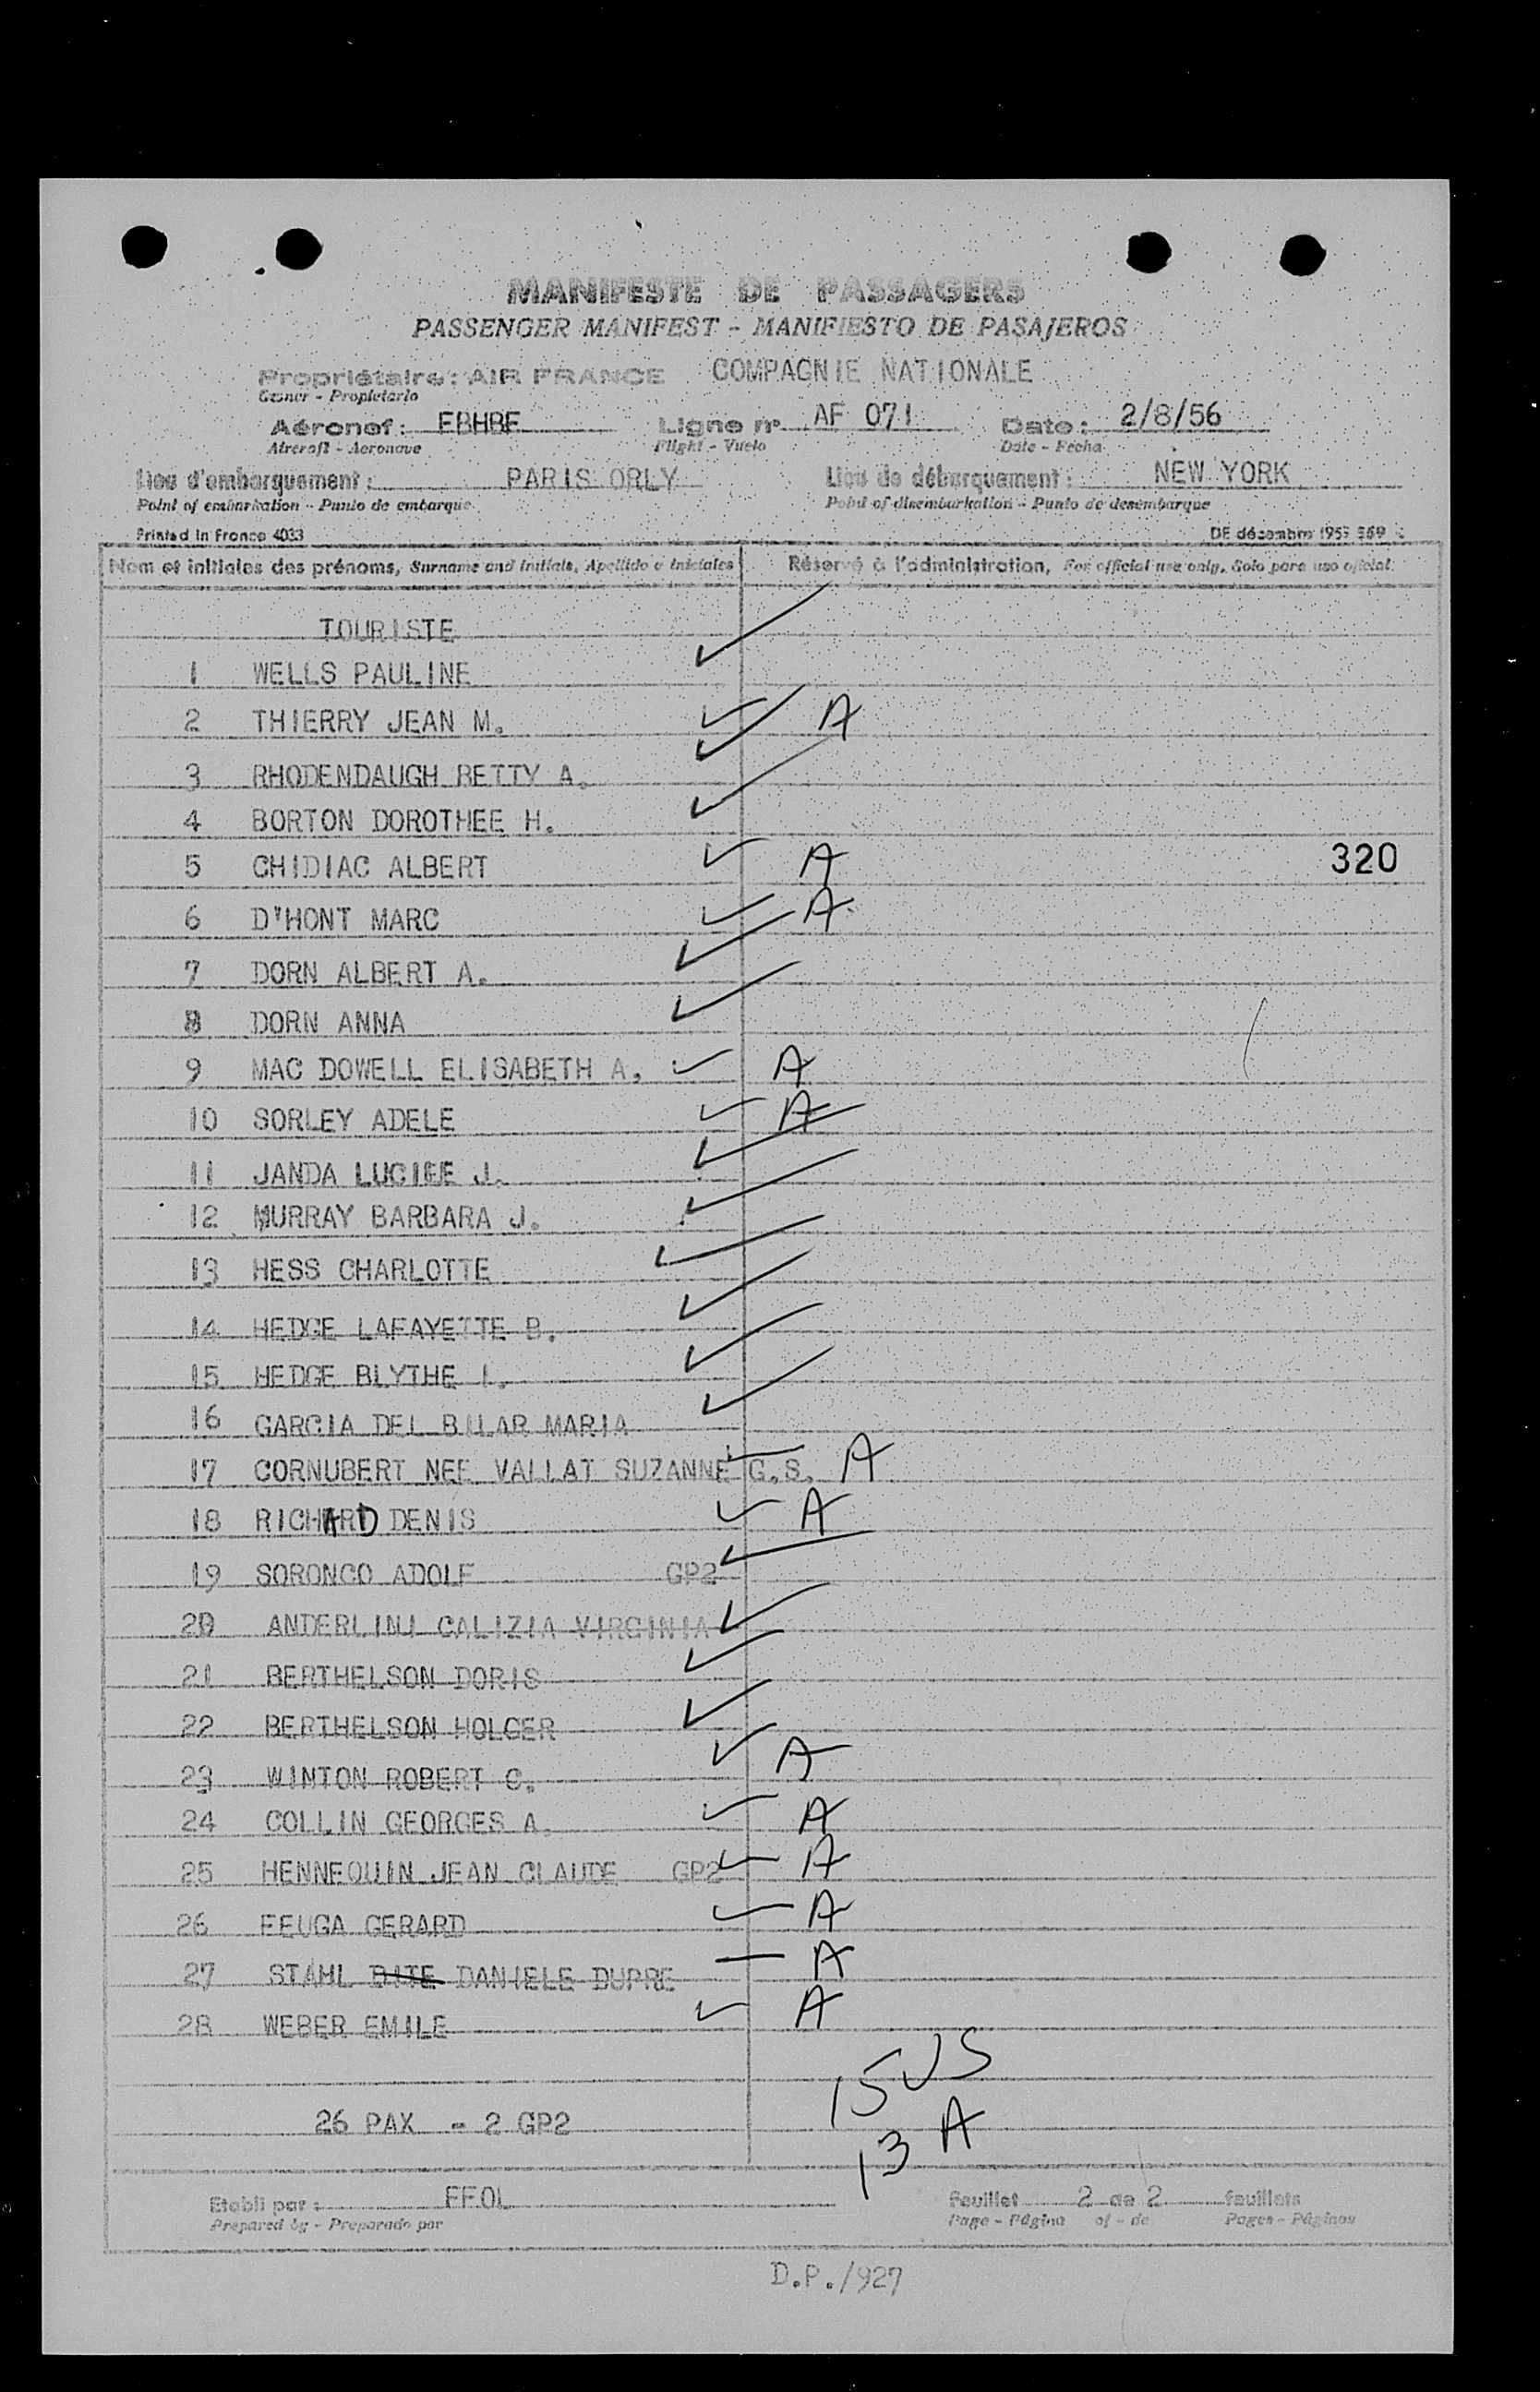 MANIFESTE DE PASSAGERS
PASSENGER MANIFEST - MANIFIESTO DE PASAJEROS
Propriétaire: AIR FRANCE COMPAGNIE NATIONALE
Owner - Propietario
Aéronef: FBHBF Ligne nº AF 071 Date: 2/8/56
Aircraft - Aeronave Flight - Vuelo Date - Fecha
Lieu d'embarquement: PARIS ORLY Lieu de débarquement: NEW YORK
Point of embarkation - Punto de embarque Point of disembarkation - Punto de desembarque
Printed in France 4033 DE décembre 195 569
Nom et initiales des prénoms, Surname and initials, Apellido e iniciales Réservé à l'administration, For official use only, Solo para uso oficial
TOURISTE
1 WELLS PAULINE ✓
2 THIERRY JEAN M. ✓ A
3 RHODENDAUGH BETTY A. ✓
4 BORTON DOROTHEE H. ✓
5 CHIDIAC ALBERT ✓ A 320
6 D'HONT MARC ✓ A
7 DORN ALBERT A. ✓
8 DORN ANNA ✓
9 MAC DOWELL ELISABETH A. ✓ A
10 SORLEY ADELE ✓ A
11 JANDA LUCIEE J. ✓
12 MURRAY BARBARA J. ✓
13 HESS CHARLOTTE ✓
14 HEDGE LAFAYETTE B. ✓
15 HEDGE BLYTHE I. ✓
16 GARCIA DEL BILAR MARIA ✓
17 CORNUBERT NEE VALLAT SUZANNE G.S. ✓ A
18 RICHARD DENIS ✓ A
19 SORONCO ADOLF GP2 ✓
20 ANDERLINI CALIZIA VIRGINIA ✓
21 BERTHELSON DORIS ✓
22 BERTHELSON HOLGER ✓
23 WINTON ROBERT C. ✓ A
24 COLLIN GEORGES A. ✓ A
25 HENNEQUIN JEAN CLAUDE GP2 ✓ A
26 FEUGA GERARD ✓ A
27 STAHL DITE DANIELE DUPRE — A
28 WEBER EMILE ✓ A
15 US
26 PAX - 2 GP2
13 A
Etabli par: FFOL Feuillet 2 de 2 feuillets
Prepared by - Preparado por Page - Página of - de Pages - Páginas
D.P./927